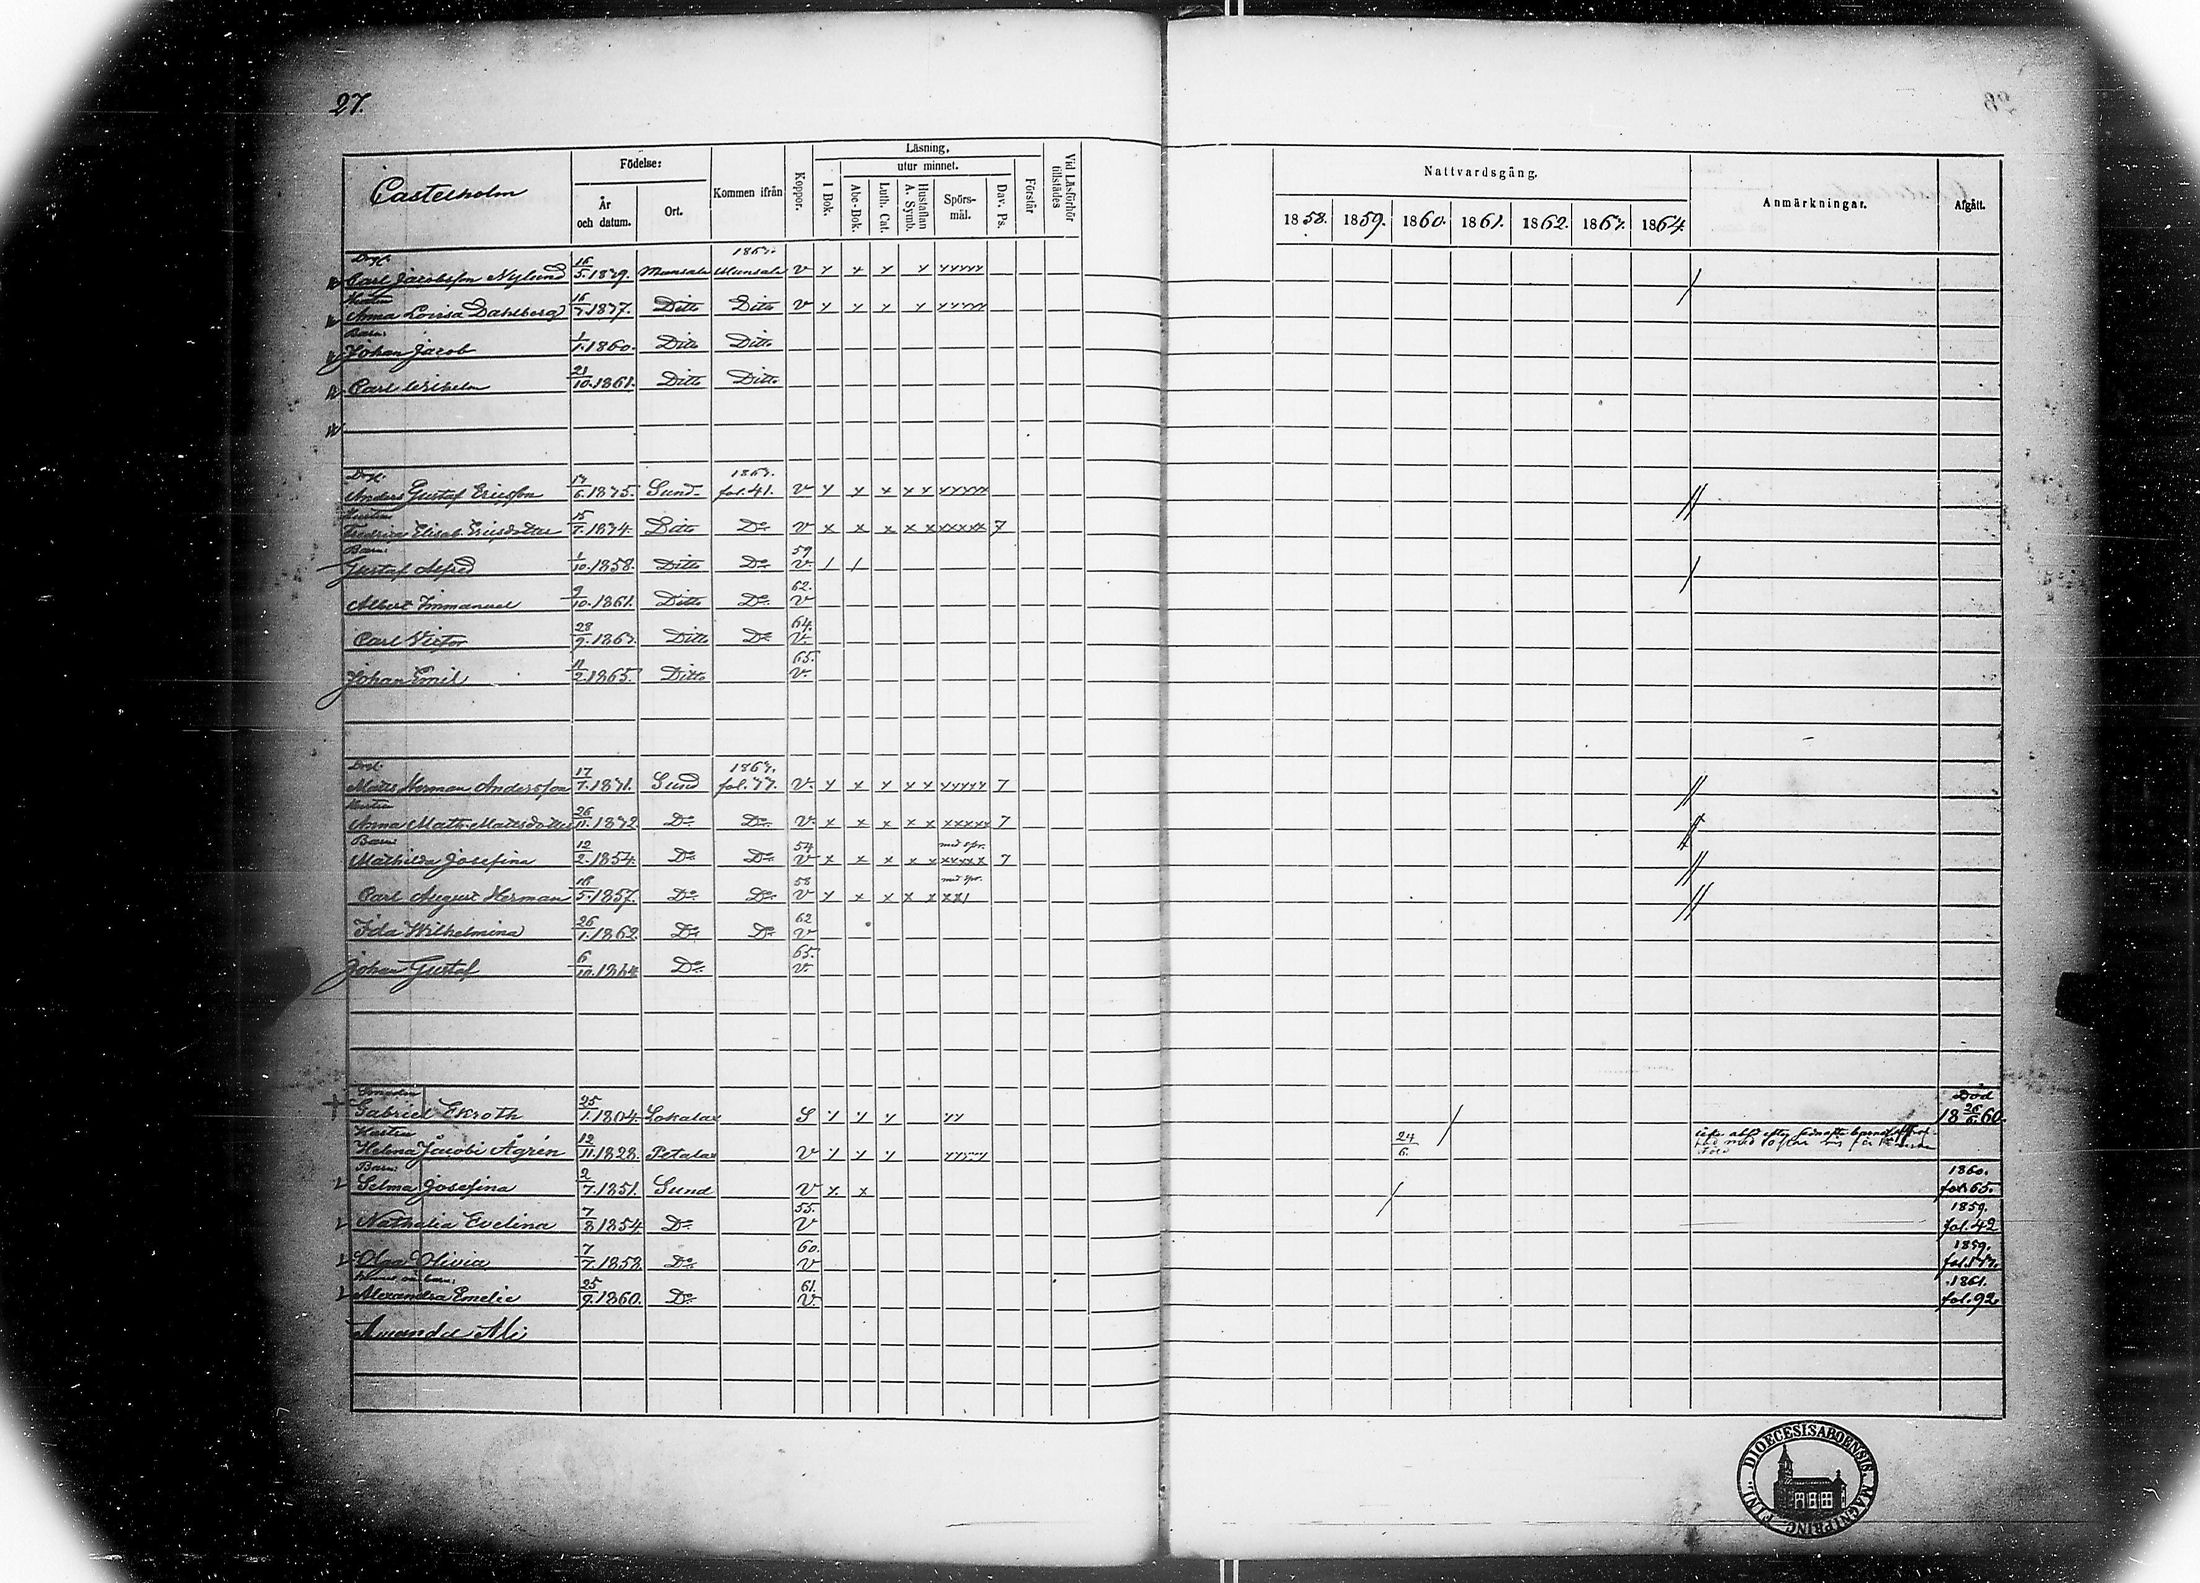 27.
Castelholm
Födelse:
År och datum.
Ort.
Kommen ifrån
Koppor.
Läsning,
utur minnet.
I Bok.
Abc-Bok.
Luth. Cat.
Hustaflan A. Symb.
Spörs-mål.
Dav. Ps.
Förstår
Vid Läsförhör tillstädes
Nattvardsgång.
1858. 1859. 1860. 1861. 1862. 1863. 1864.
Anmärkningar.
Afgått.
1863.
Carl Jacobsson Nylund 16/5.1839. Munsala Munsala v
Hustru
Anna Lovisa Dahlberg 1837. Ditto Ditto v
Barn:
Johan Jacob 1/1.1860. Ditto Ditto
Carl Wilhelm 21/10.1861. Ditto Ditto
1863.
Anders Gustaf Ericsson 6.1835. Sund fol. 41. v
Hustru
Fredrica Elisab. Ericsdotter 15 1834. Ditto Do v 7
Barn:
Gustaf Alfred 1/10.1858. Ditto Do 59 v
Albert Immanuel 9/10.1861. Ditto Do 62. v
Carl Victor 28/9.1863. Ditto Do 64. v.
Johan Emil 11/2.1865. Ditto 65. v.
1863.
Matts Herman Andersson 17/7.1831. Sund fol. 33. v. 7
Hustru
Anna Math. Mattsdotter 26/11.1832 Do Do v. 7
Barn:
Mathilda Josefina 12/2.1854. Do Do 54 v med spr. 7
Carl August Herman 18/5.1857. Do Do 58 v med spr.
Ida Wilhelmina 26/1.1862. Do Do 62 v
Johan Gustaf 6/10.1864 Do 65. v.
Smeden
Gabriel Ekroth 25/1.1804. Lokalax S Död 18 26/6 60.
Hustru
Helena Jacobi Ågrén 12/11.1828. Petalax v 24/6.
Barn:
Selma Josefina 2/7.1851. Sund v 1860. fol. 65.
Nathalia Evelina 7/8 1854 Do 55. v 1859. fol. 42
Olga Olivia 7/7.1858. Do 60. v 1859.
Alexandra Emelie 25/9.1860. Do 61. v. 1861. fol. 92
DIOECESIS ABOENSIS. MAGNI PRINC. FINL.